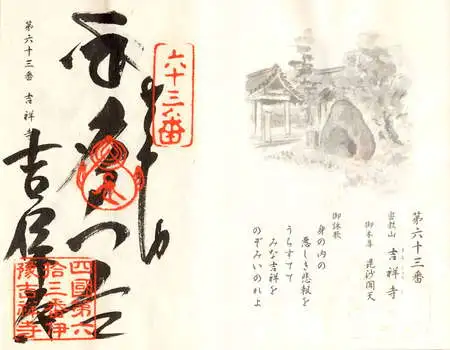 第六十三番
密教山 吉祥寺
御本尊 毘沙聞天
御詠歌
身の内の
悪しき悲報を
うちすてて
みな吉祥を
のぞみいのれよ
六十三番
吉祥寺
第六十三番 吉祥寺
四國第六
拾三番伊
豫吉祥寺